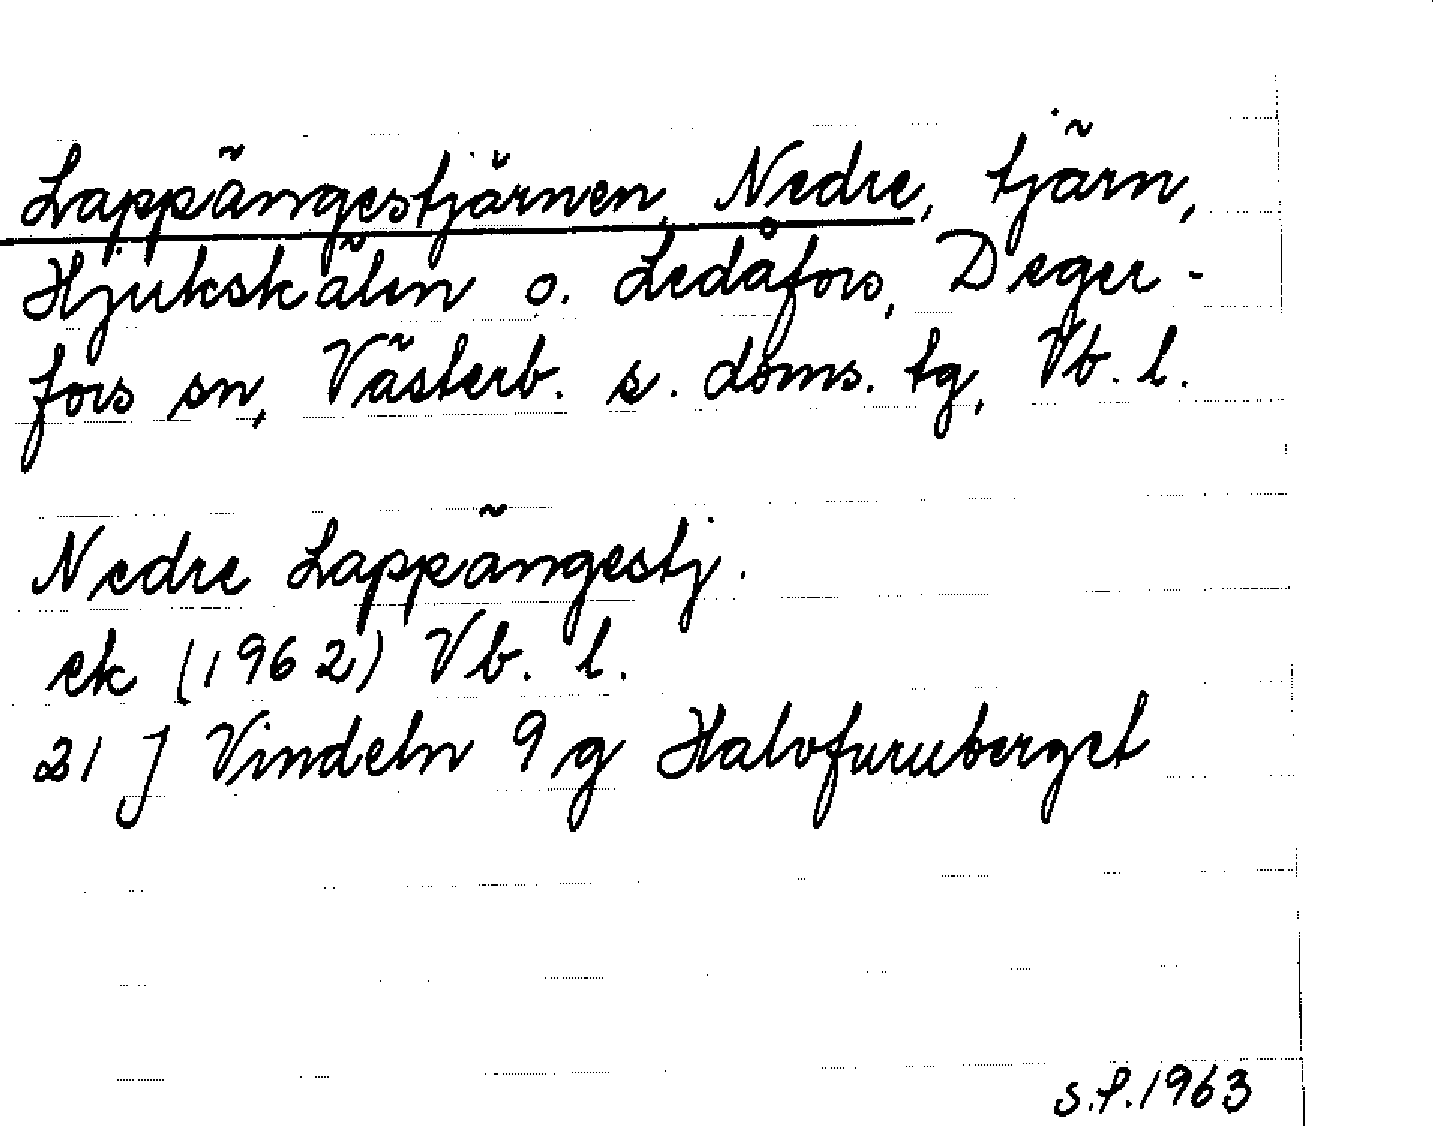 Lappängestjärnen, Nedre, tjärn,
Hjukskälen o. Ledåfors, Deger-
fors sn, Västerb. s. doms. tg, Vb. l.
Nedre Lappängestj.
ek (1962) Vb. l.
21 J Vindeln 9 g Halvfuruberget
S.P. 1963